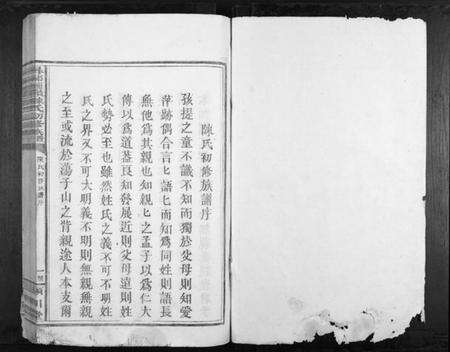 陳氏初修族譜序
孩提之童不識不知而獨於父母則知愛
萍跡偶合言匕語匕而知爲同姓則語長
無他爲其親也知親匕之孟子以爲仁大
傳以爲道蓋良知發展近則父母遠則姓
氏勢必至也雖然姓氏之義不可不明姓
氏之界又不可大明義不明則無親無親
之至或流於蕩子山之背親逾人本支爾
陳氏初修族譜序